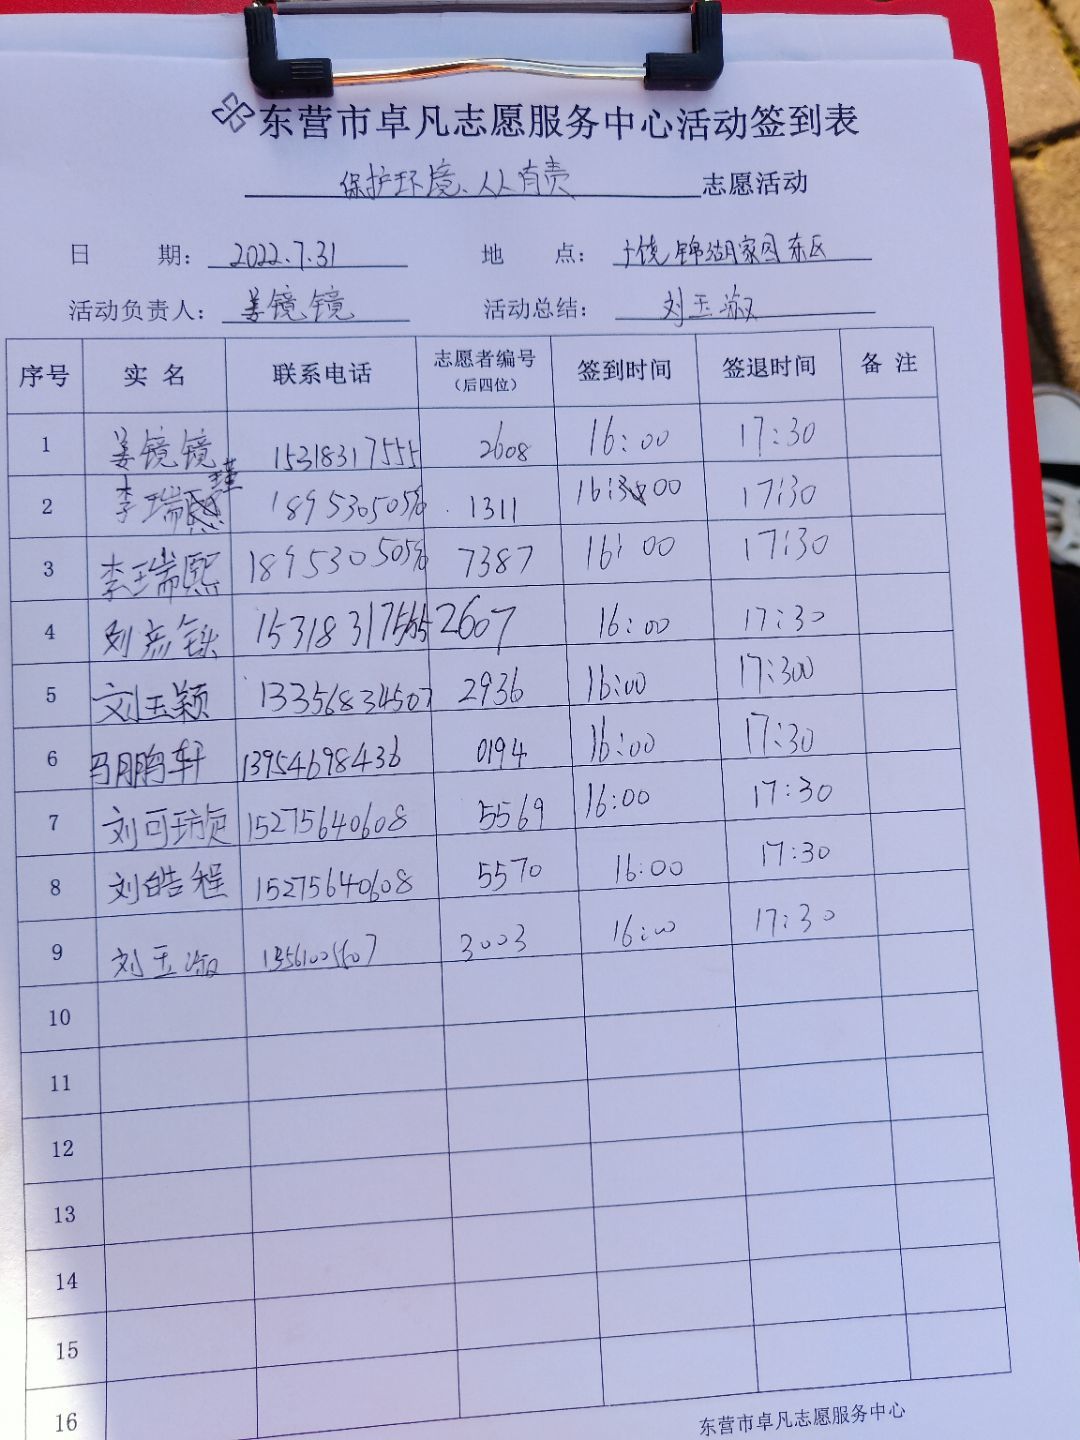 东营市卓凡志愿服务中心活动签到表
保护环境、人人有责 志愿活动
日 期: 2022.7.31 地 点: 广饶锦湖家园东区
活动负责人: 姜镜镜 活动总结: 刘玉淑
序号 实 名 联系电话 志愿者编号 签到时间 签退时间 备 注
(后四位)
1 姜镜镜 15318317555 2608 16:00 17:30
2 李瑞瑾 18953050596 1311 16:00 17:30
3 李瑞熙 18953050596 7387 16:00 17:30
4 刘 2607 16:00 17:30
5 刘玉颖 13356834507 2936 16:00 17:300
6 马鹏轩 13954698436 0194 16:00 17:30
7 刘可 15275640608 5569 16:00 17:30
8 刘皓程 15275640608 5570 16:00 17:30
9 刘玉淑 13561005607 3003 16:00 17:30
10
11
12
13
14
15
16
东营市卓凡志愿服务中心